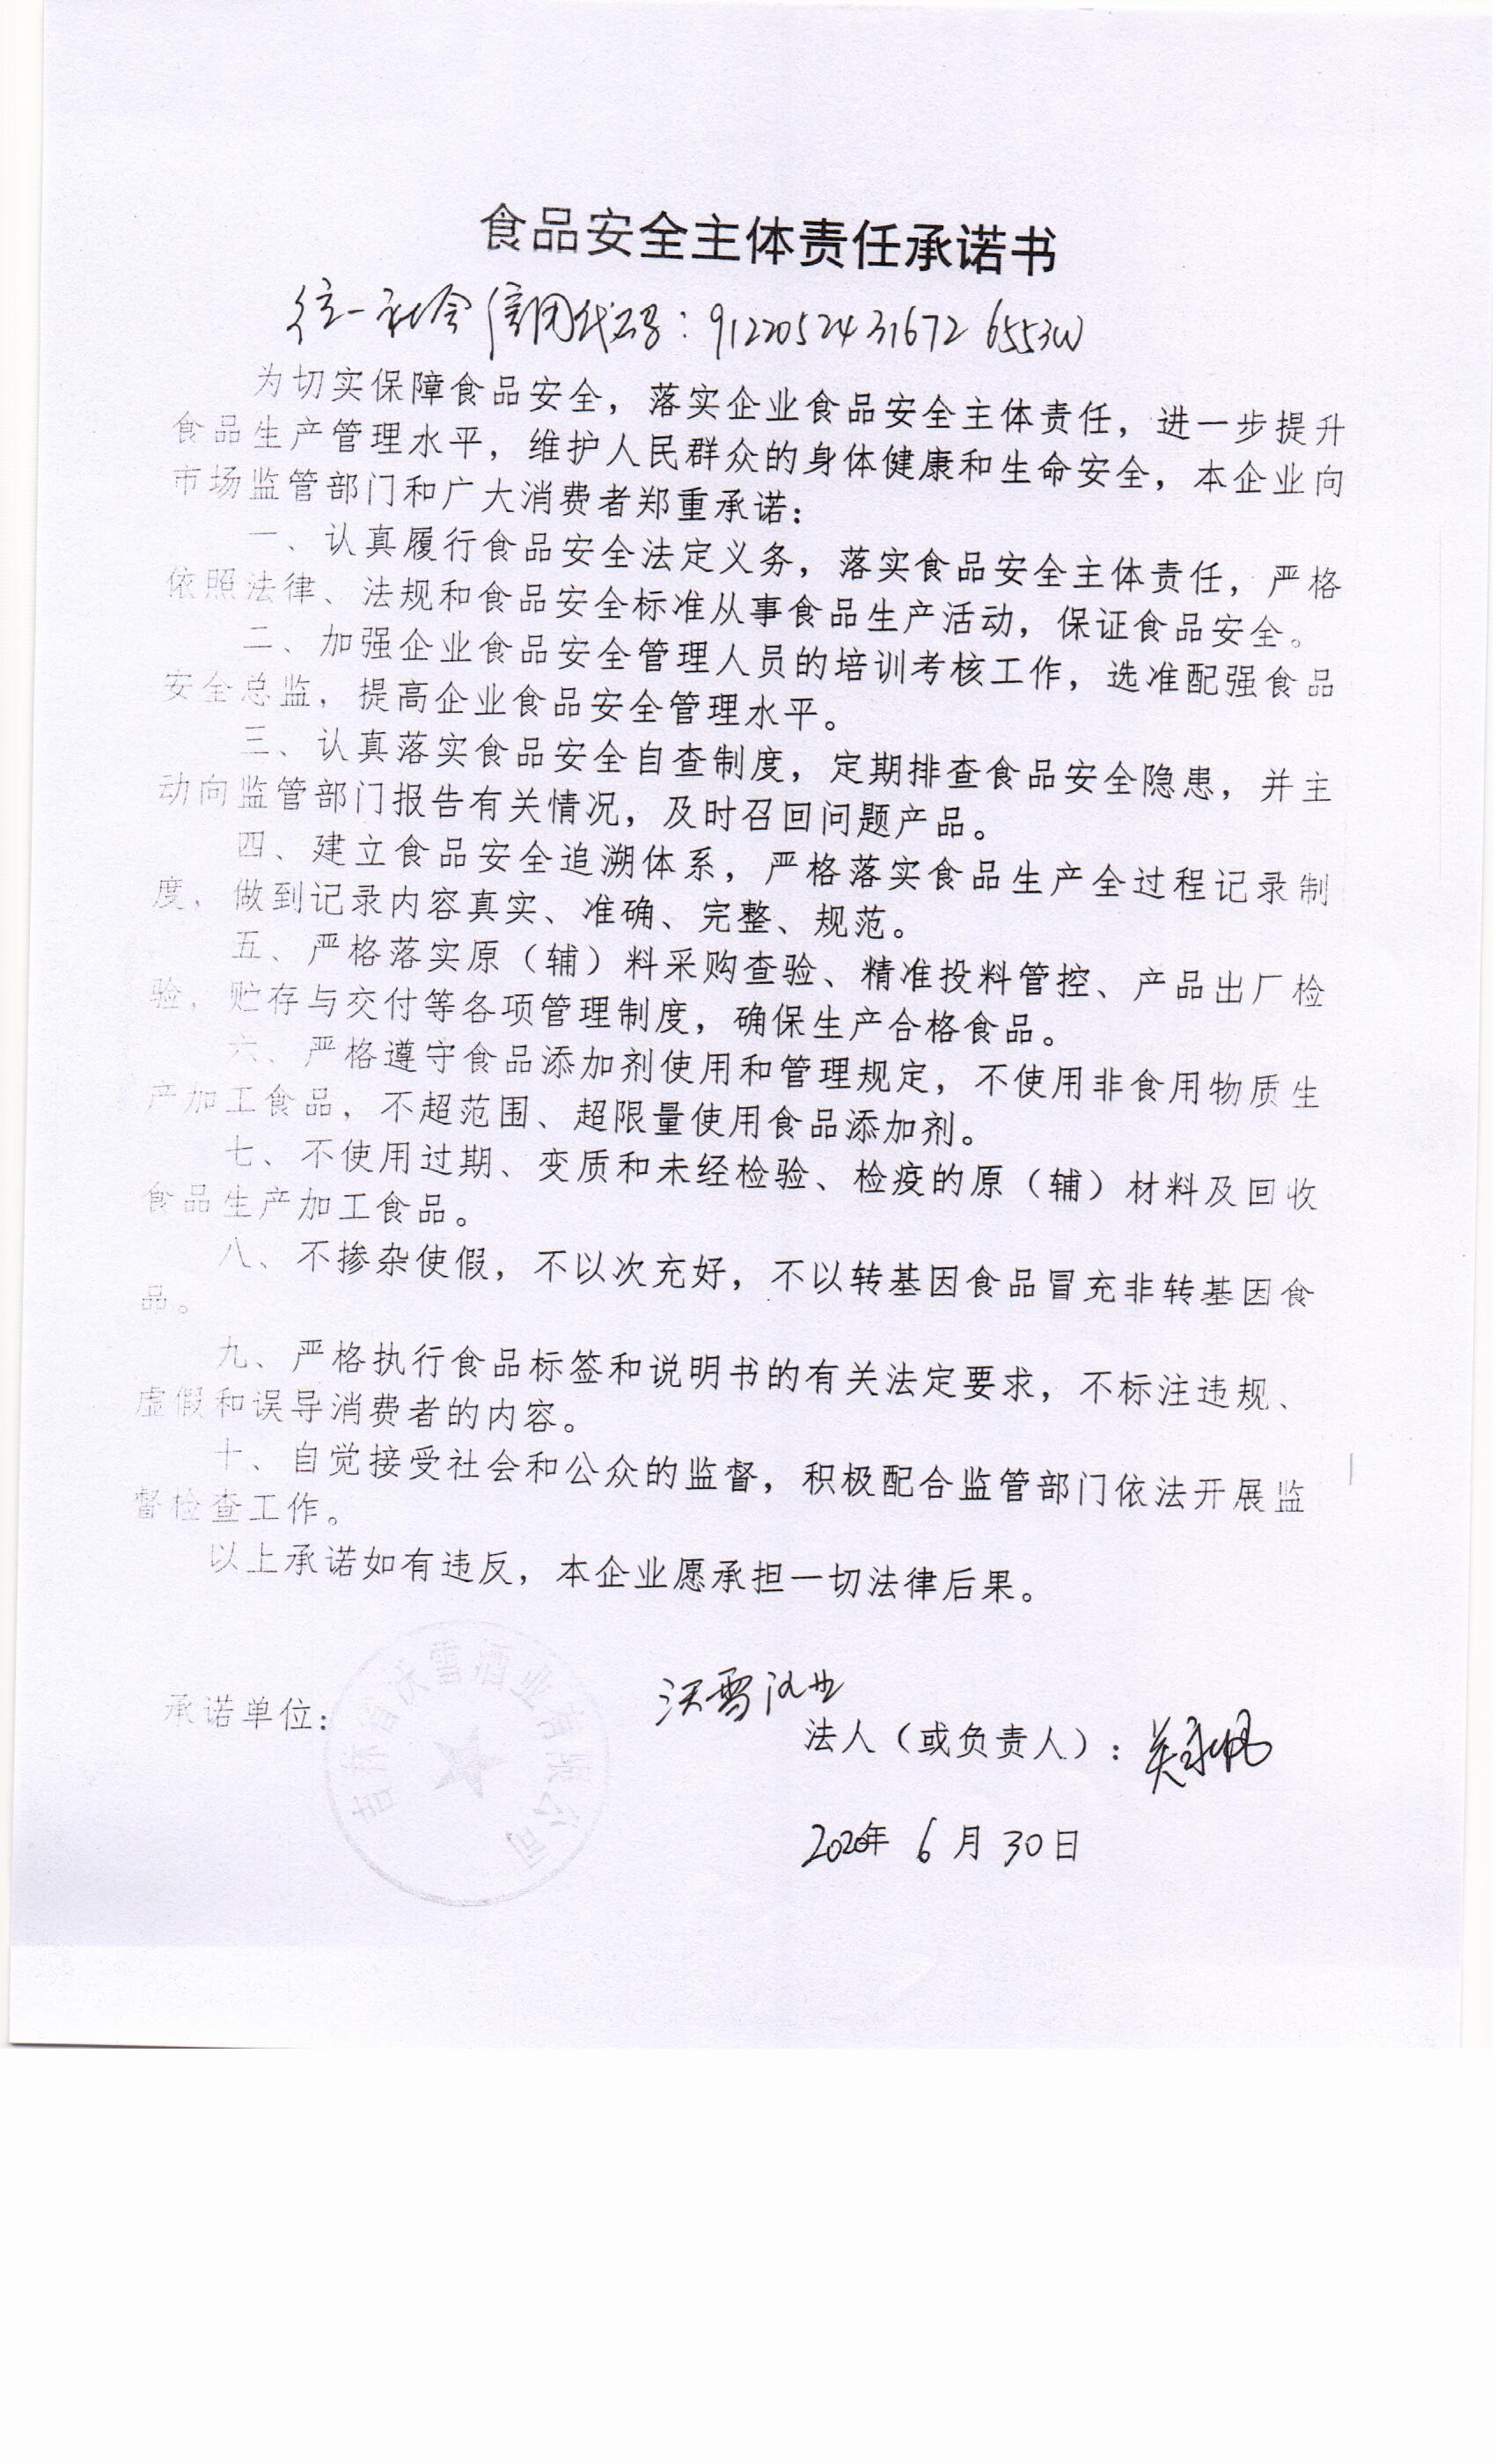 食品安全主体责任承诺书
统一社会信用代码：91220524316726553W
为切实保障食品安全，落实企业食品安全主体责任，进一步提升
食品生产管理水平，维护人民群众的身体健康和生命安全，本企业向
市场监管部门和广大消费者郑重承诺：
一、认真履行食品安全法定义务，落实食品安全主体责任，严格
依照法律、法规和食品安全标准从事食品生产活动，保证食品安全。
二、加强企业食品安全管理人员的培训考核工作，选准配强食品
安全总监，提高企业食品安全管理水平。
三、认真落实食品安全自查制度，定期排查食品安全隐患，并主
动向监管部门报告有关情况，及时召回问题产品。
四、建立食品安全追溯体系，严格落实食品生产全过程记录制
度，做到记录内容真实、准确、完整、规范。
五、严格落实原（辅）料采购查验、精准投料管控、产品出厂检
验，贮存与交付等各项管理制度，确保生产合格食品。
六、严格遵守食品添加剂使用和管理规定，不使用非食用物质生
产加工食品，不超范围、超限量使用食品添加剂。
七、不使用过期、变质和未经检验、检疫的原（辅）材料及回收
食品生产加工食品。
八、不掺杂使假，不以次充好，不以转基因食品冒充非转基因食
品。
九、严格执行食品标签和说明书的有关法定要求，不标注违规、
虚假和误导消费者的内容。
十、自觉接受社会和公众的监督，积极配合监管部门依法开展监
督检查工作。
以上承诺如有违反，本企业愿承担一切法律后果。
吉林省沃雪酒业有限公司
沃雪酒业
承诺单位：
法人（或负责人）：
2020年 6月30日